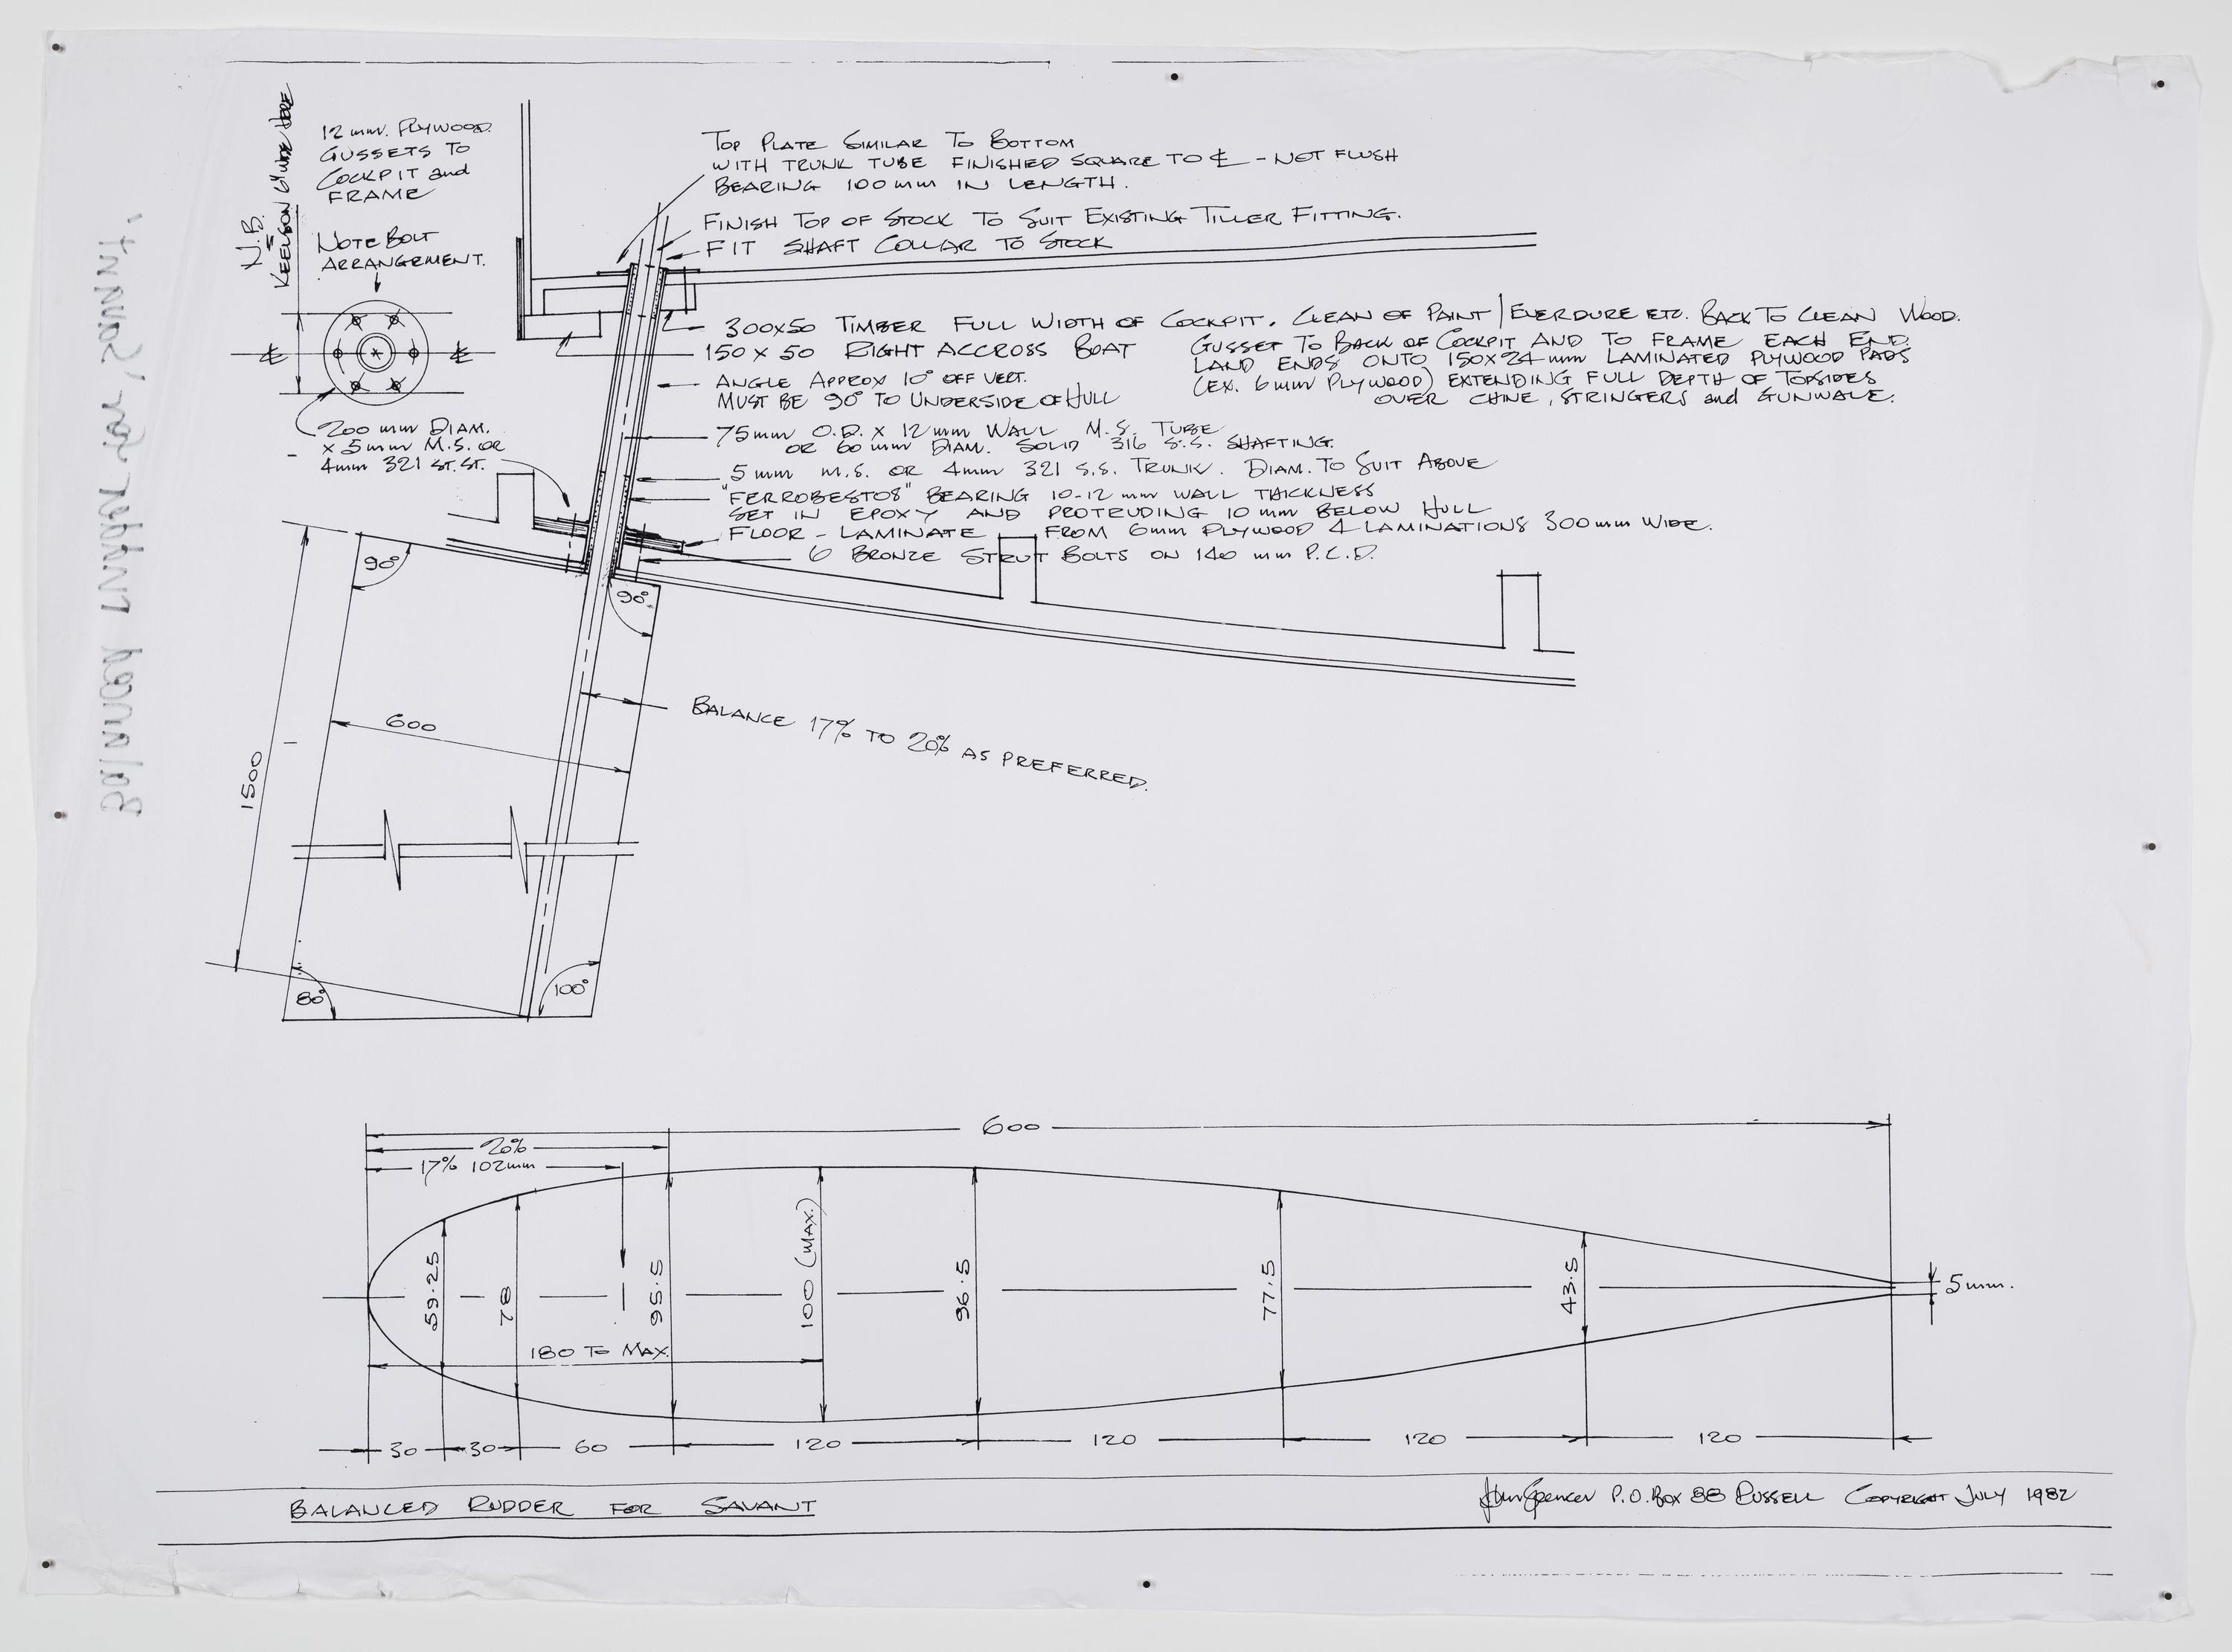 12 mm. PLYWOOD.
GUSSETS TO
COCKPIT and
FRAME
N.B.
KEELSON 6" WIDE HERE
NOTE BOLT
ARRANGEMENT.
200 mm DIAM.
x 5 mm M.S. OR
4mm 321 ST. ST.
TOP PLATE SIMILAR TO BOTTOM
WITH TRUNK TUBE FINISHED SQUARE TO ℄ - NOT FLUSH
BEARING 100 mm IN LENGTH.
FINISH TOP OF STOCK TO SUIT EXISTING TILLER FITTING.
FIT SHAFT COLLAR TO STOCK
300x50 TIMBER FULL WIDTH OF COCKPIT. CLEAN OF PAINT / EVERDURE ETC. BACK TO CLEAN WOOD.
150 x 50 RIGHT ACCROSS BOAT
GUSSET TO BACK OF COCKPIT AND TO FRAME EACH END.
LAND ENDS ONTO 150x24 mm LAMINATED PLYWOOD PADS
(EX. 6mm PLYWOOD) EXTENDING FULL DEPTH OF TOPSIDES
OVER CHINE, STRINGERS and GUNWALE.
ANGLE APPROX 10° OFF VERT.
MUST BE 90° TO UNDERSIDE OF HULL
75mm O.D. x 12mm WALL M.S. TUBE
OR 60 mm DIAM. SOLID 316 S.S. SHAFTING.
5 mm M.S. OR 4mm 321 S.S. TRUNK. DIAM. TO SUIT ABOVE
"FERROBESTOS" BEARING 10-12 mm WALL THICKNESS
SET IN EPOXY AND PROTRUDING 10 mm BELOW HULL
FLOOR - LAMINATE FROM 6mm PLYWOOD 4 LAMINATIONS 300mm WIDE.
6 BRONZE STRUT BOLTS ON 140 mm P.C.D.
90°
90°
BALANCE 17% TO 20% AS PREFERRED.
600
1500
80°
100°
Balanced rudder for 'Savant'.
600
20%
17% 102mm
59.25
78
95.5
100 (MAX.)
96.5
77.5
43.5
5mm.
180 TO MAX.
30 30 60 120 120 120 120
BALANCED RUDDER FOR SAVANT
John Spencer P.O. BOX 88 RUSSELL COPYRIGHT JULY 1982